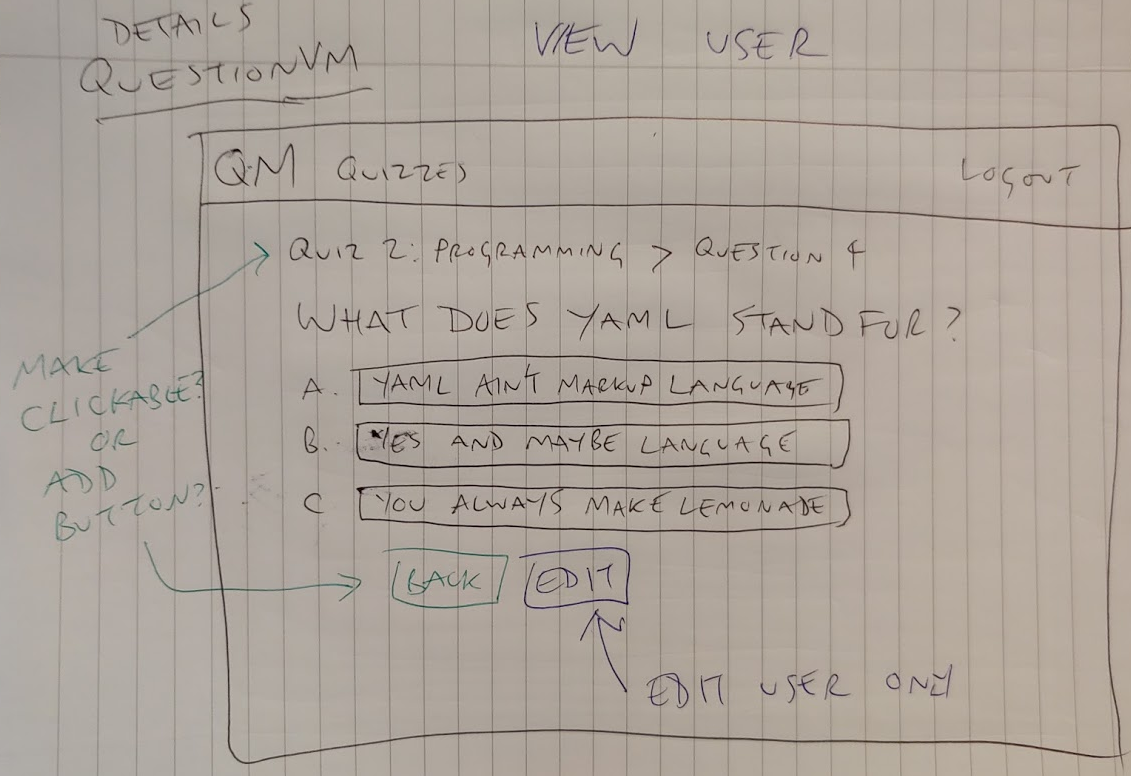 DETAILS
QUESTIONVM
VIEW USER
QM QUIZZES LOGOUT
QUIZ 2: PROGRAMMING > QUESTION 4
WHAT DOES YAML STAND FOR?
A. YAML AIN'T MARKUP LANGUAGE
B. YES AND MAYBE LANGUAGE
C YOU ALWAYS MAKE LEMONADE
BACK EDIT
EDIT USER ONLY
MAKE
CLICKABLE?
OR
ADD
BUTTON?